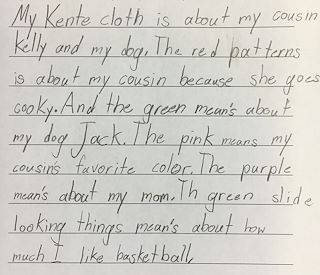 My Kente cloth is about my cousin
kelly and my dog. The red patterns
is about my cousin because she goes
cooky. And the green mean's about
my dog Jack. The pink means my
cousin's favorite color. The purple
mean's about my mom. Th green slide
looking things mean's about how
much I like basketball.